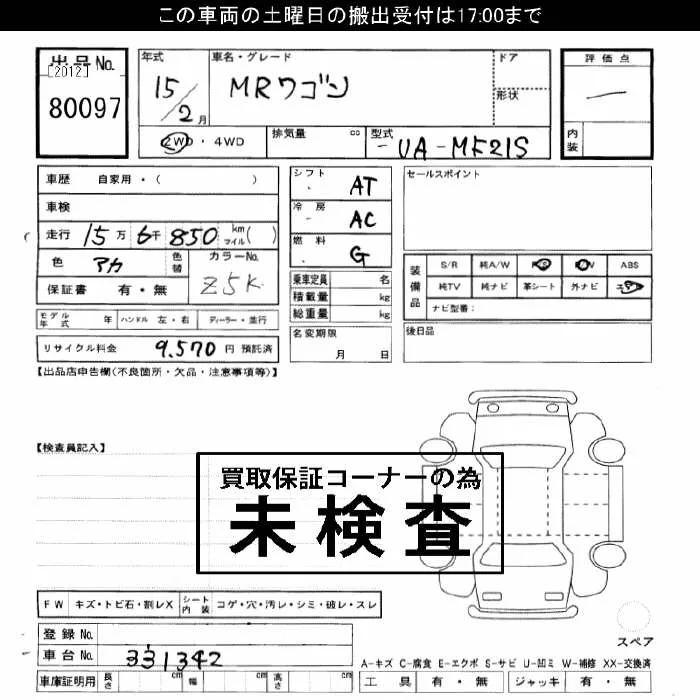 この車両の土曜日の搬出受付は17:00まで
出品No. 年式 車名・グレード ドア 評価点
[2012]
80097 15/2月 MRワゴン 形状 一
2WD・4WD 排気量 cc 型式 UA-MF21S 内装
車歴 自家用・( ) シフト AT セールスポイント
車検 冷房 AC
走行 15万6千850 km マイル( )
燃料 G
色 アカ 色替 カラーNo. Z5K
保証書 有・無
乗車定員 名
積載量 kg
総重量 kg
装備品 S/R 純A/W P/S P/W ABS
純TV 純ナビ 革シート 外ナビ エアB
ナビ型番:
モデル年式 年 ハンドル 左・右 ディーラー・並行
名変期限 月 日
後日品
リサイクル料金 9,570 円 預託済
【出品店申告欄(不良箇所・欠品・注意事項等)】
【検査員記入】
買取保証コーナーの為
未検査
FW キズ・トビ石・割レX シート内装 コゲ・穴・汚レ・シミ・破レ・スレ
登録No.
スペア
車台No. 331342
A-キズ C-腐食 E-エクボ S-サビ U-凹ミ W-補修 XX-交換済
車庫証明用 長さ cm 幅 cm 高さ cm 工具 有・無 ジャッキ 有・無